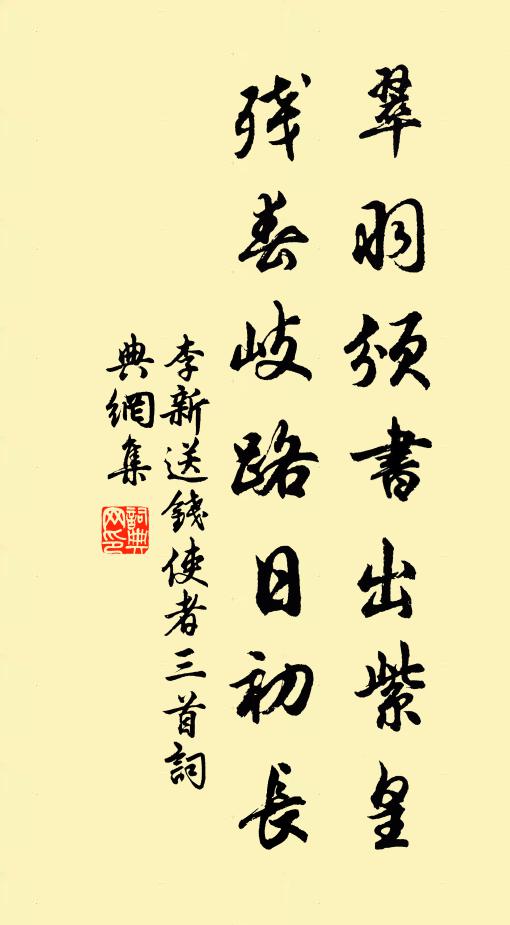 翠羽頒書出紫皇
残春歧路日初長
李新送錢使者三首詞
典網集
詞典
网印